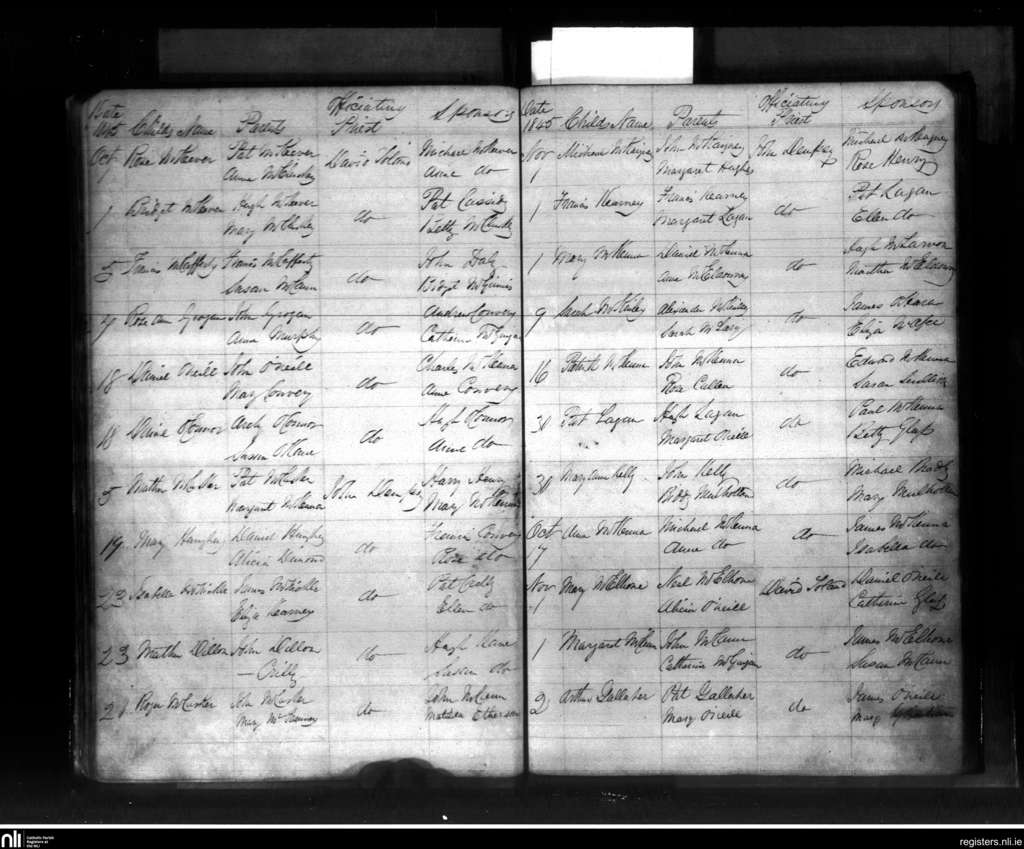 Date
1845 Childs Name Parents Officiating Priest Sponsors
Oct 1 Rose McKeever Pat McKeever David Toland Michael McKeever
Anne McCluskey Anne do
1 Bridget McKeever Hugh McKeever do Pat Cassidy
Mary McCluskey Betty McCluskey
5 Francis McCafferty Francis McCafferty do John Daly
Susan McCann Bridget McGinnis
Rose Ann Grogan John Grogan do Andrew Convery
Anne Murphy Catherine McGuigan
18 Daniel O'Neill John O'Neill do Charles McKenna
Mary Convery Anne Convery
18 O'Connor O'Connor do Hugh O'Connor
Susan Anne do
5 Matthew McCusker Pat McCusker John Dempsey Harry Henry
Margaret McKenna Mary McKenna
19 Mary Haughey Daniel Haughey do Convery
Alicia Diamond Rose do
23 Isabella James do Pat Crilly
Eliza Kearney Ellen do
23 Matthew Dillon John Dillon do Hugh Kane
— Crilly Susan do
Roger McCusker John McCusker do John McCann
Mary Matilda Etherson
Date
1845 Childs Name Parents Officiating Priest Sponsors
Nov 1 Michael John John Dempsey Michael
Margaret Hughes Rose Henry
1 Francis Kearney Francis Kearney do Pat Lagan
Margaret Lagan Ellen do
1 Mary McKenna Daniel McKenna do Hugh
Anne McEldowney Martha McEldowney
9 Sarah McKinley Alexander McKinley do James
Sarah Eliza
16 Patrick McKenna John McKenna do Edward McKenna
Rose Cullen Susan
30 Pat Lagan Hugh Lagan do Paul McKenna
Margaret O'Neill Betty Glass
30 Mary Anne Kelly John Kelly do Michael
Biddy Mulholland Mary Mulholland
Oct 17 Ann McKenna Michael McKenna do James McKenna
Anne do Isabella do
Nov 1 Mary McElhone Neil McElhone David Toland Daniel O'Neill
Alicia O'Neill Catherine Glass
1 Margaret McCann John McCann do James McElhone
Catherine McGuigan Susan McCann
2 Arthur Gallagher Pat Gallagher do James O'Neill
Mary O'Neill Mary
nli Catholic Parish
Registers at
the NLI
registers.nli.ie